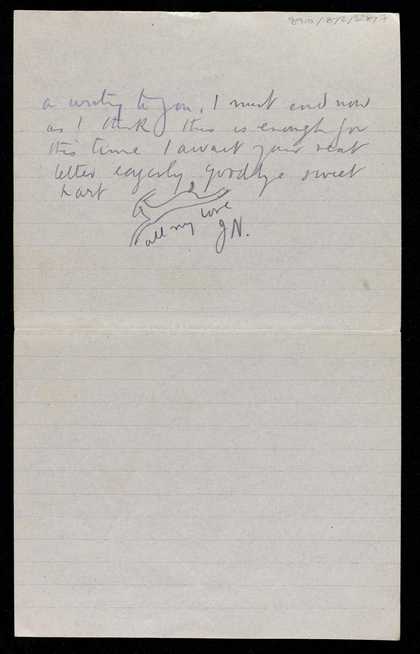 a writing to you, I must end now
as I think this is enough for
this time I await your next
letter eagerly goodbye sweet
hart
all my love
JN.